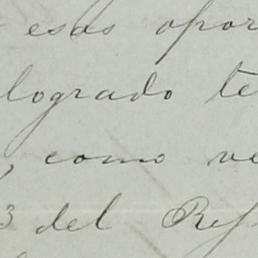 esas opor
logrado te
, como ve
3 del Ref